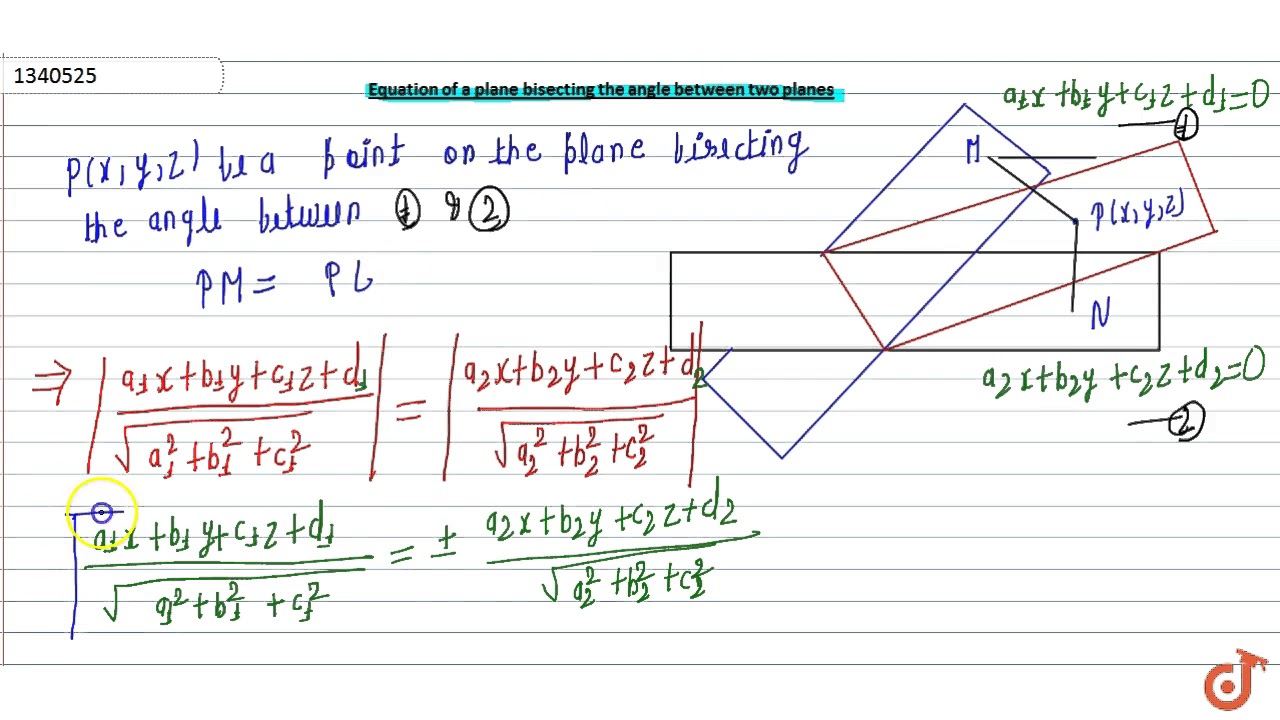 1340525
Equation of a plane bisecting the angle between two planes
a₁x + b₁y + c₁z + d₁ = 0
— ①
P(x, y, z) be a point on the plane bisecting
the angle between ① & ②
PM = PL
M
P(x, y, z)
N
a₂x + b₂y + c₂z + d₂ = 0
— ②
⇒ |(a₁x + b₁y + c₁z + d₁) / √(a₁² + b₁² + c₁²)| = |(a₂x + b₂y + c₂z + d₂) / √(a₂² + b₂² + c₂²)|
(a₁x + b₁y + c₁z + d₁) / √(a₁² + b₁² + c₁²) = ± (a₂x + b₂y + c₂z + d₂) / √(a₂² + b₂² + c₂²)